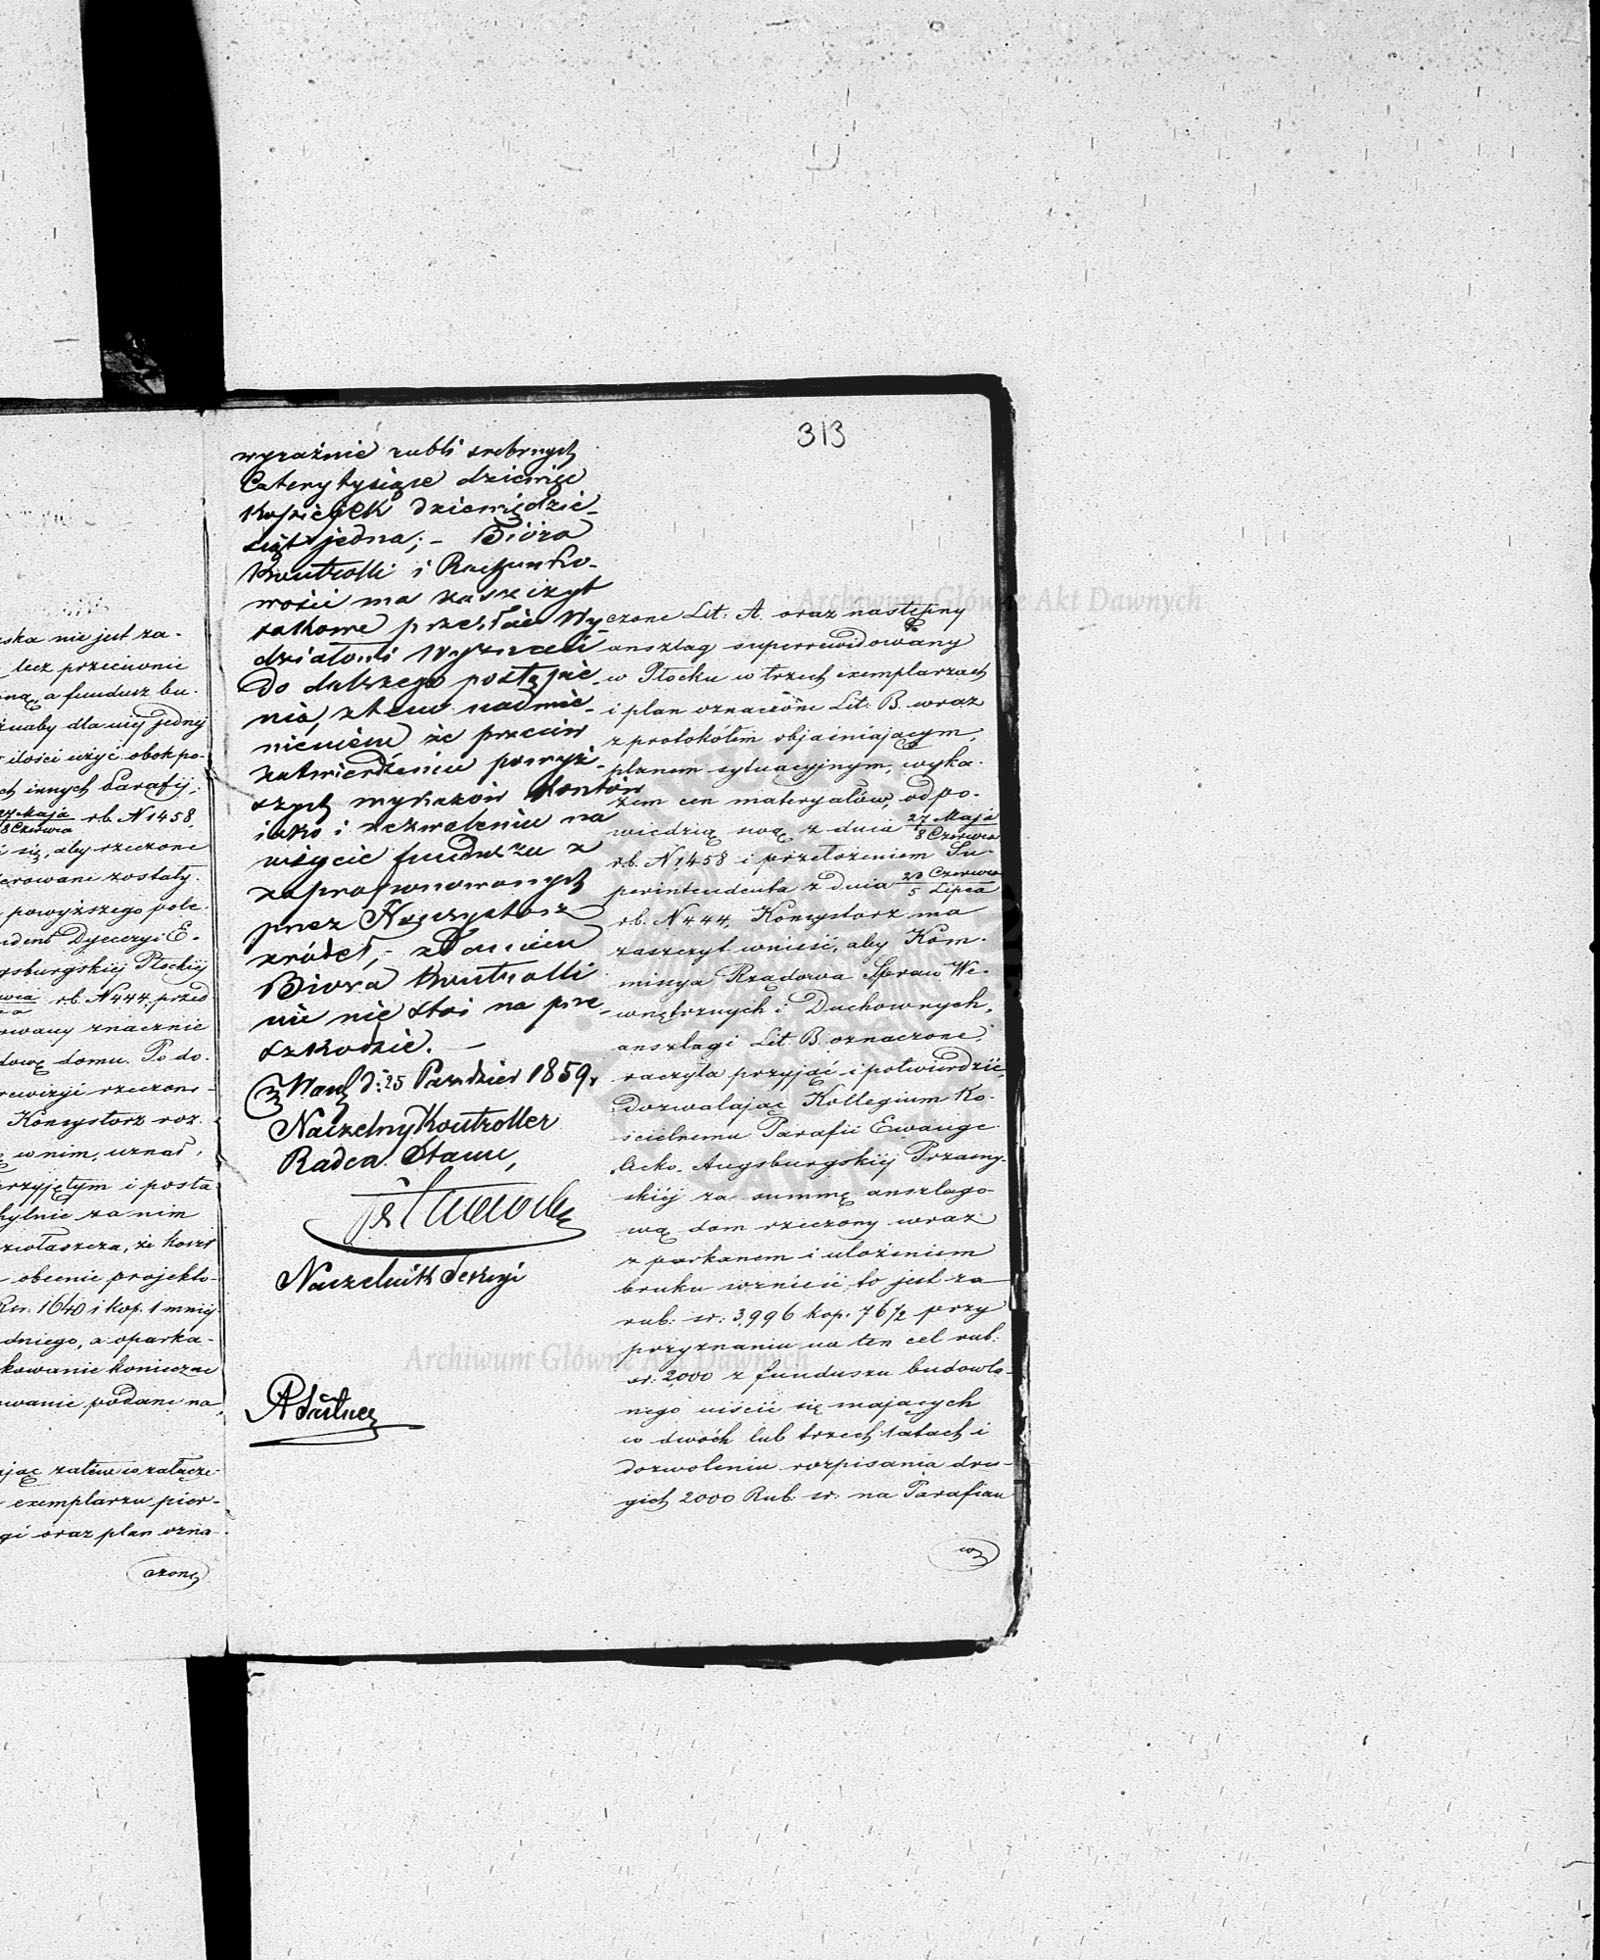 313
ska nie jest za-
lecz przeciwnie
oną, a fundusz bu-
żnaby dla niej jednej
ilości użyć obok po-
ch innych Parafij;
27 Maja
8 Czerwca rb. N 1458,
i się, aby rzeczone
erowane zostały.
powyższego pole-
ident Dyecezyi E-
gsburgskiej Płockiej
rb. N 444, przed
owany znacznie
dowę domu. Po do-
rewizyi rzeczone-
Konsystorz roz-
w nim, uznał,
przyjętym i posta
hylnie za nim
zwłaszcza, że koszt
obecnie projekto-
Rsr. 1640 i kop. 1 mniej
dniego, a oparka-
kowanie konieczne
owanie podane na
jąc zatem w załącze-
exemplarzu pier-
gi oraz plan ozna-
czone
wyraźnie rubli srebrnych
Cztery tysiące dziewięć
Kopiejek dziewiędzie-
siąt jedna; – Bióro
Kontrolli i Rachunko-
wości ma zaszczyt
takowe przesłać Wy-
działowi Wyznań
do dalszego postąpie-
nia, z tem nadmie-
nieniem że przeciw
zatwierdzeniu powyż-
szych wykazów Kosztów
jako i zezwoleniu na
użycie funduszu z
zaproponowanych
przez Konsystorz
źródeł, – zdaniem
Biora Kontrolli
nic nie stoi na prze-
szkodzie. –
w Warsz. d: 25 Paździer 1859 r.
Naczelny Kontroller
Radca Stanu,
Naczelnik Sekcyi
czone Lit: A. oraz następny
anszlag superrewidowany
w Płocku w trzech exemplarzach
i plan oznaczone Lit: B. wraz
z protokółem objaśniającym,
planem sytuacyjnym, wyka-
zem cen materyałów, odpo-
wiedzią swą z dnia 27 Maja
8 Czerwca
rb. N 1458 i przełożeniem Su-
perintendenta z dnia 23 Czerwca
5 Lipca
rb. N 444, Konsystorz ma
zaszczyt wnieść, aby Kom-
missya Rządowa Spraw We-
wnętrznych i Duchownych,
anszlagi Lit. B. oznaczone,
raczyła przyjąć i potwierdzić,
dozwalając Kollegium Ko-
ścielnemu Parafii Ewange-
licko-Augsburgskiej Przasny-
skiej za summę anszlago-
wą dom rzeczony wraz
z parkanem i ułożeniem
bruku wznieść, to jest za
rub: sr: 3,996 kop. 76½ przy
przyznaniu na ten cel rub:
sr: 2,000 z funduszu budowla-
nego uiścić się mających
w dwóch lub trzech latach i
dozwoleniu rozpisania dru-
gich 2000 Rub: sr: na Parafian
w
Archiwum Główne Akt Dawnych
Archiwum Główne Akt Dawnych